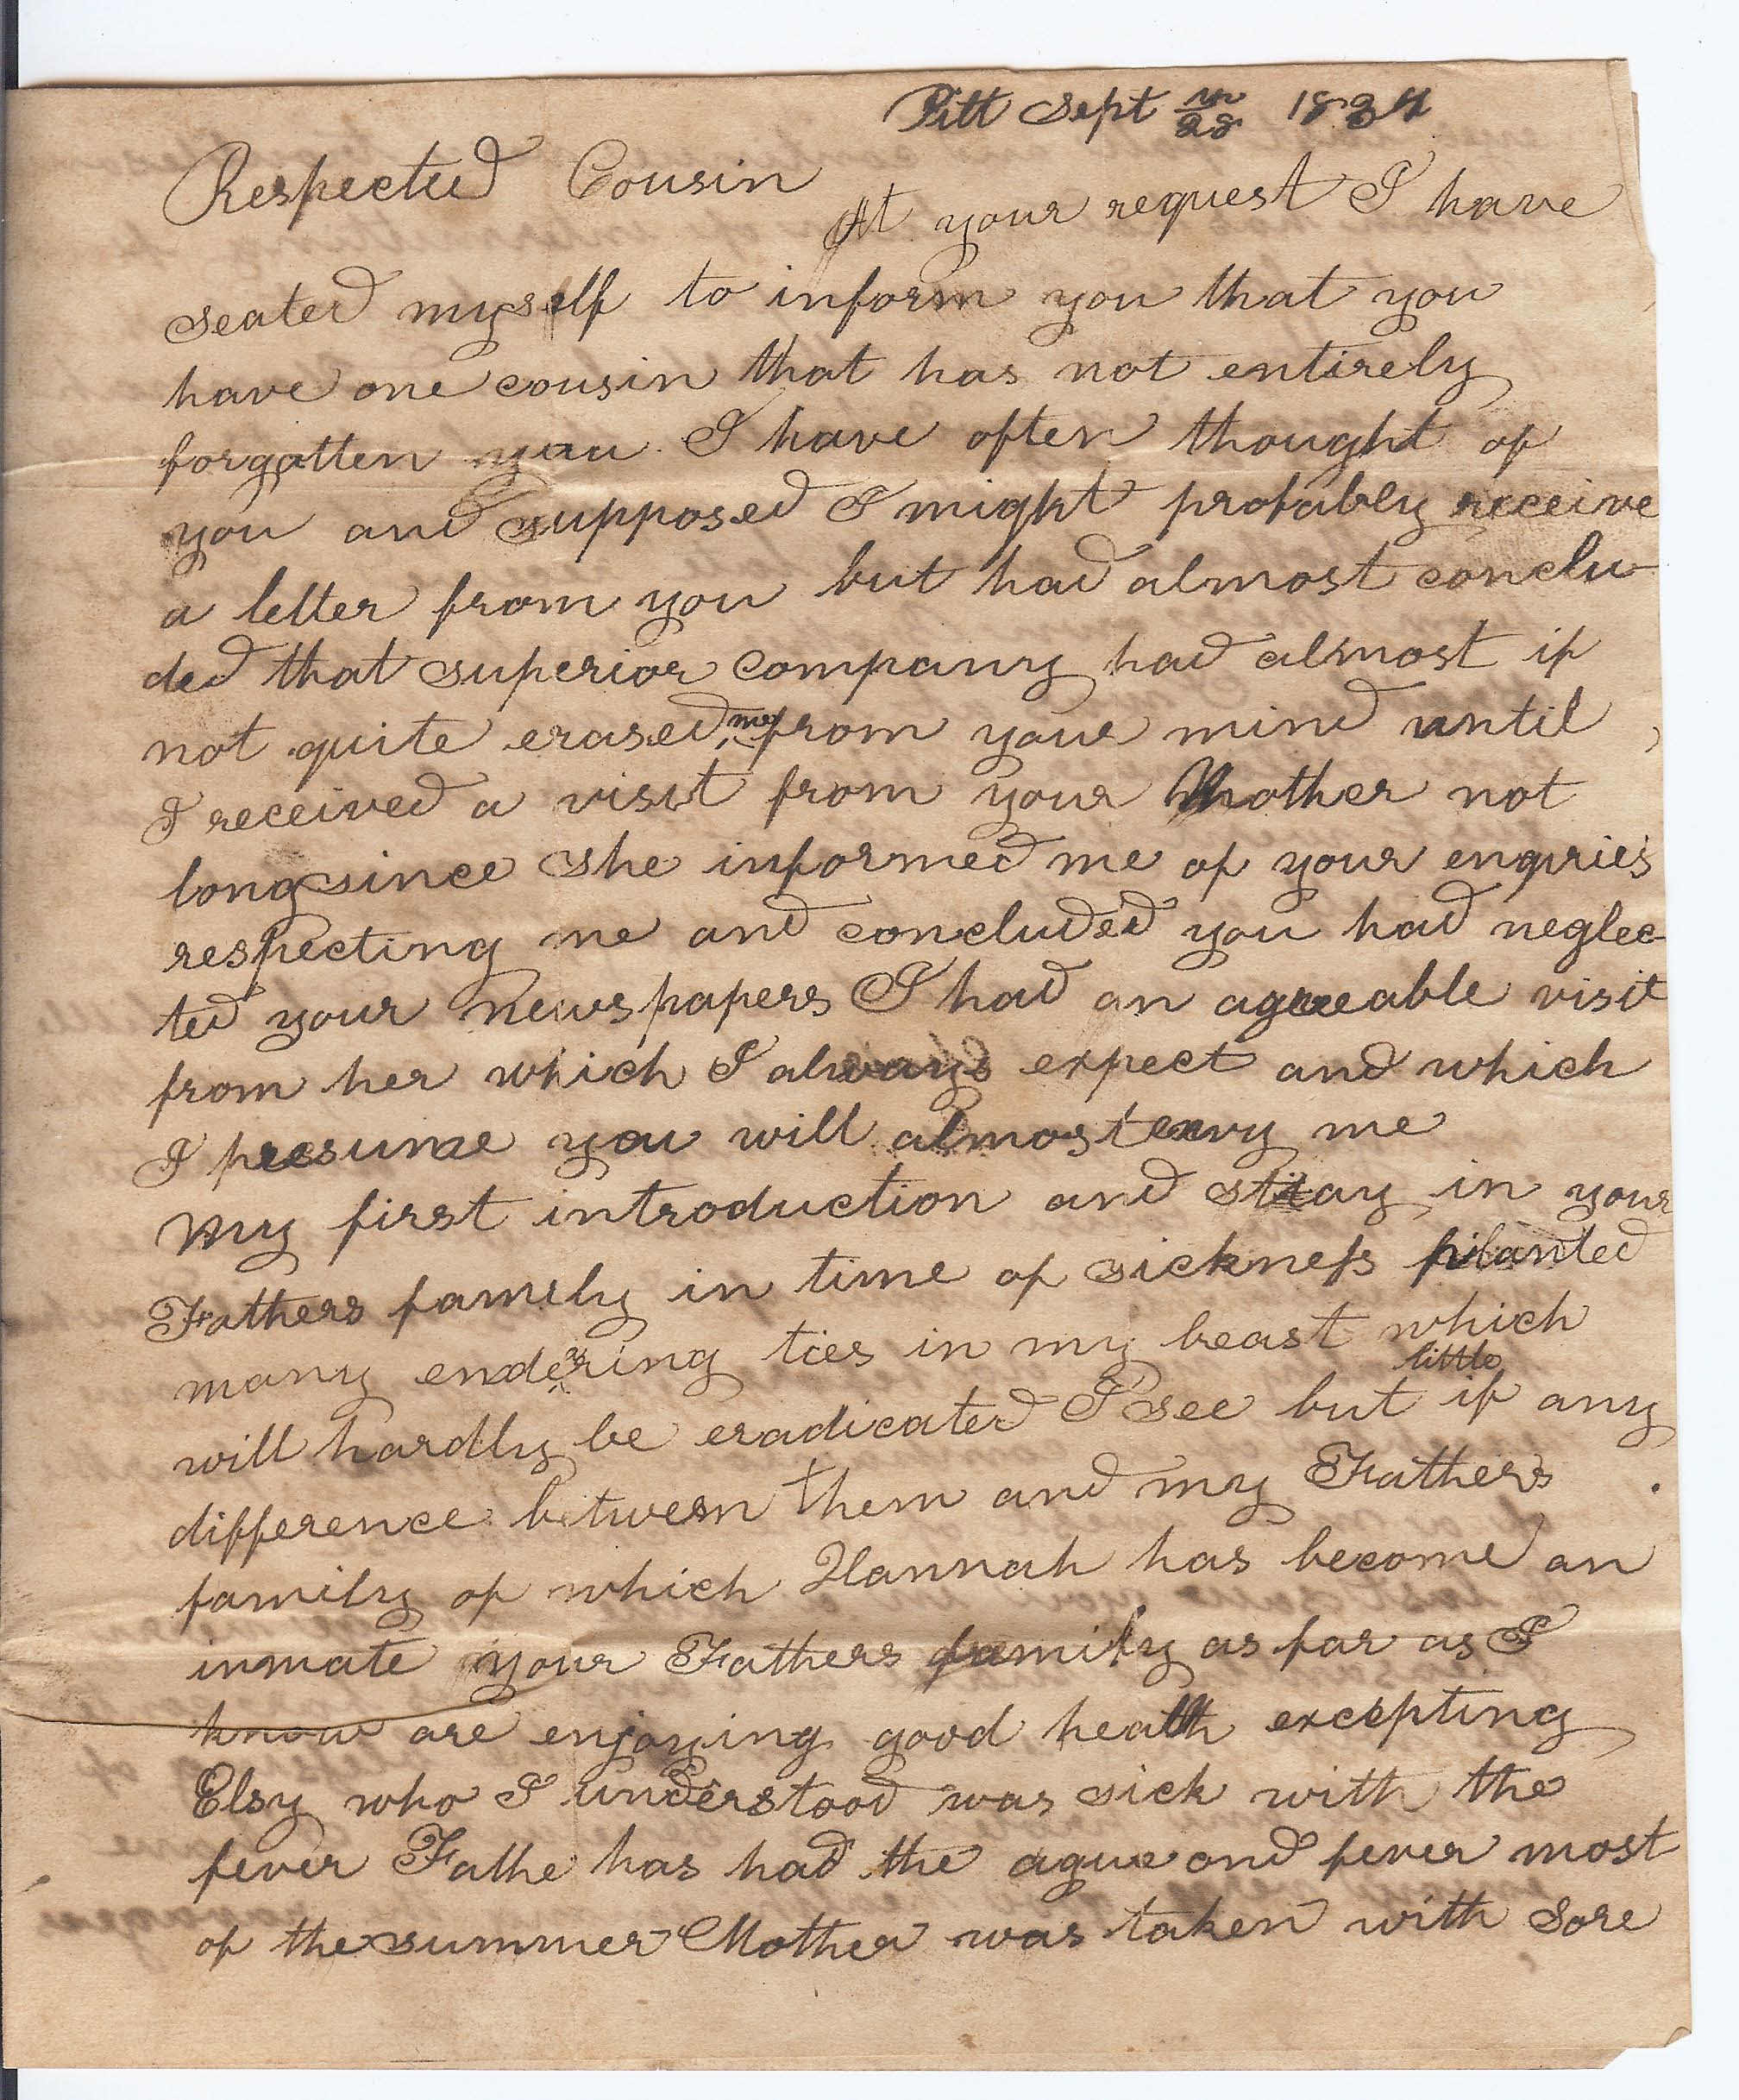 Pitt Sept 28 1834
Respected Cousin
At your request I have
seated myself to inform you that you
have one cousin that has not entirely
forgotten you. I have often thought of
you and supposed I might probably receive
a letter from you but had almost conclu-
ded that superior company had almost if
not quite erased me from your mind until
I received a visit from your Mother not
long since She informed me of your enqries
respecting me and concluded you had neglec-
ted your newspapers I had an agreeable visit
from her which I always expect and which
I presume you will almost envy me
My first introduction and stay in your
Fathers family in time of sickness planted
many endearing ties in my breast which
will hardly be eradicated I see but little if any
difference between them and my Father's
family of which Hannah has become an
inmate your Fathers family as far as I
know are enjoying good health excepting
Elsy who I understood was sick with the
fever Fathe has had the ague and fever most
of the summer Mother was taken with Sore